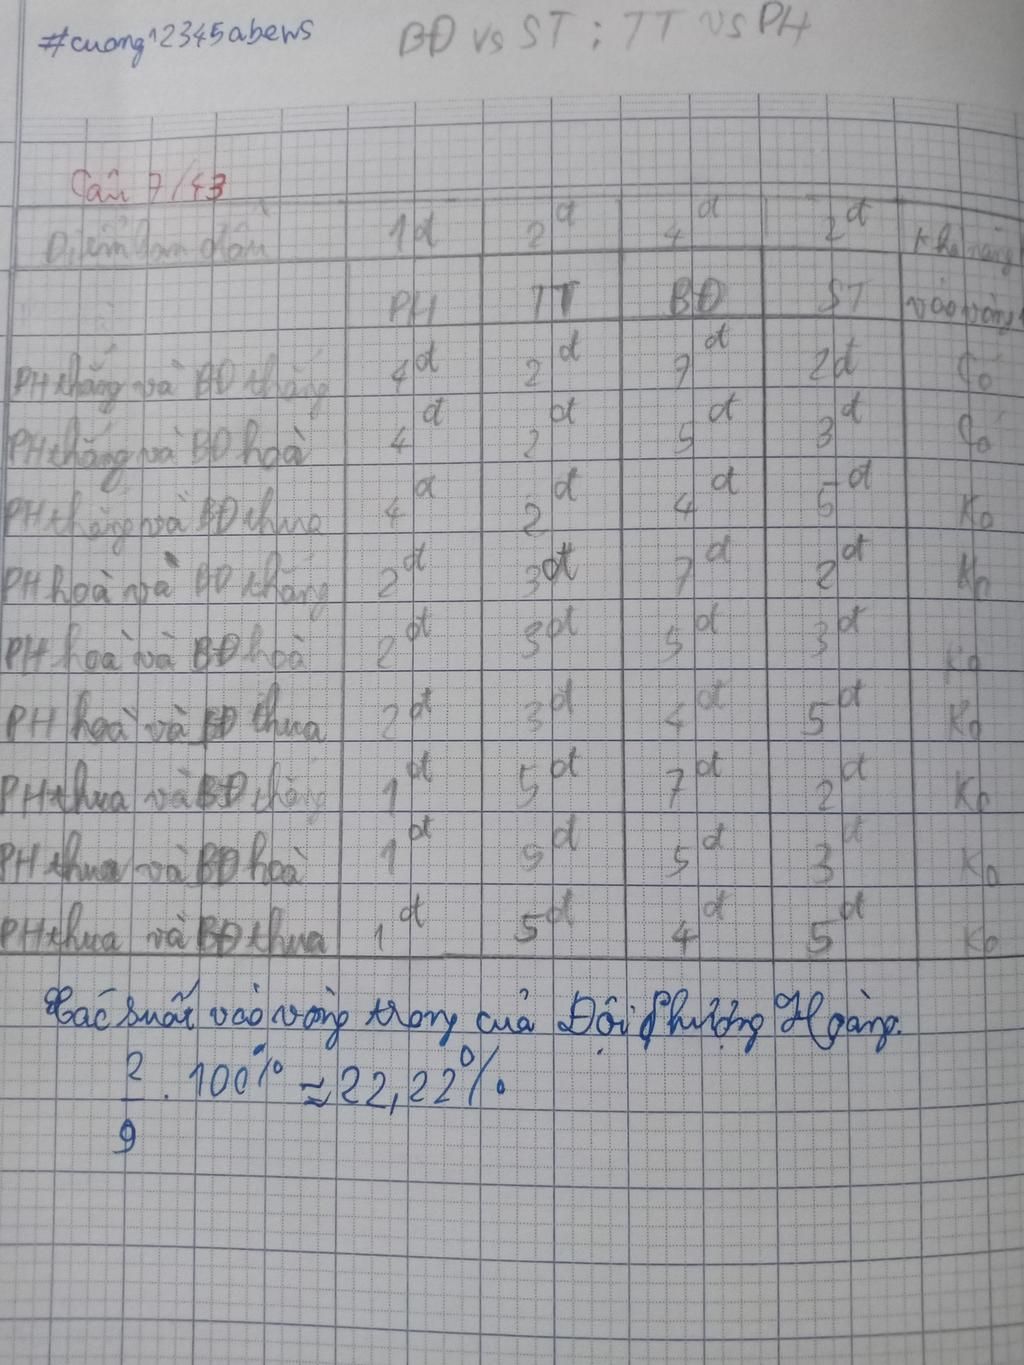 #cuong12345abens
BĐ vs ST ; TT vs PH
Câu 7/43
Điểm ban đầu 1đ 2đ 4đ 2đ Khả năng
PH TT BĐ ST vào vòng
PH thắng và BĐ thắng 4đ 2đ 7đ 2đ Có
PH thắng và BĐ hoà 4đ 2đ 5đ 3đ Có
PH thắng và BĐ thua 4đ 2đ 4đ 5đ Ko
PH hoà và BĐ thắng 2đ 3đ 7đ 2đ Ko
PH hoà và BĐ hoà 2đ 3đ 5đ 3đ Ko
PH hoà và BĐ thua 2đ 3đ 4đ 5đ Ko
PH thua và BĐ thắng 1đ 5đ 7đ 2đ Ko
PH thua và BĐ hoà 1đ 5đ 5đ 3đ Ko
PH thua và BĐ thua 1đ 5đ 4đ 5đ Ko
Xác suất vào vòng trong của Đội Phượng Hoàng.
2/9 . 100% ≈ 22,22%